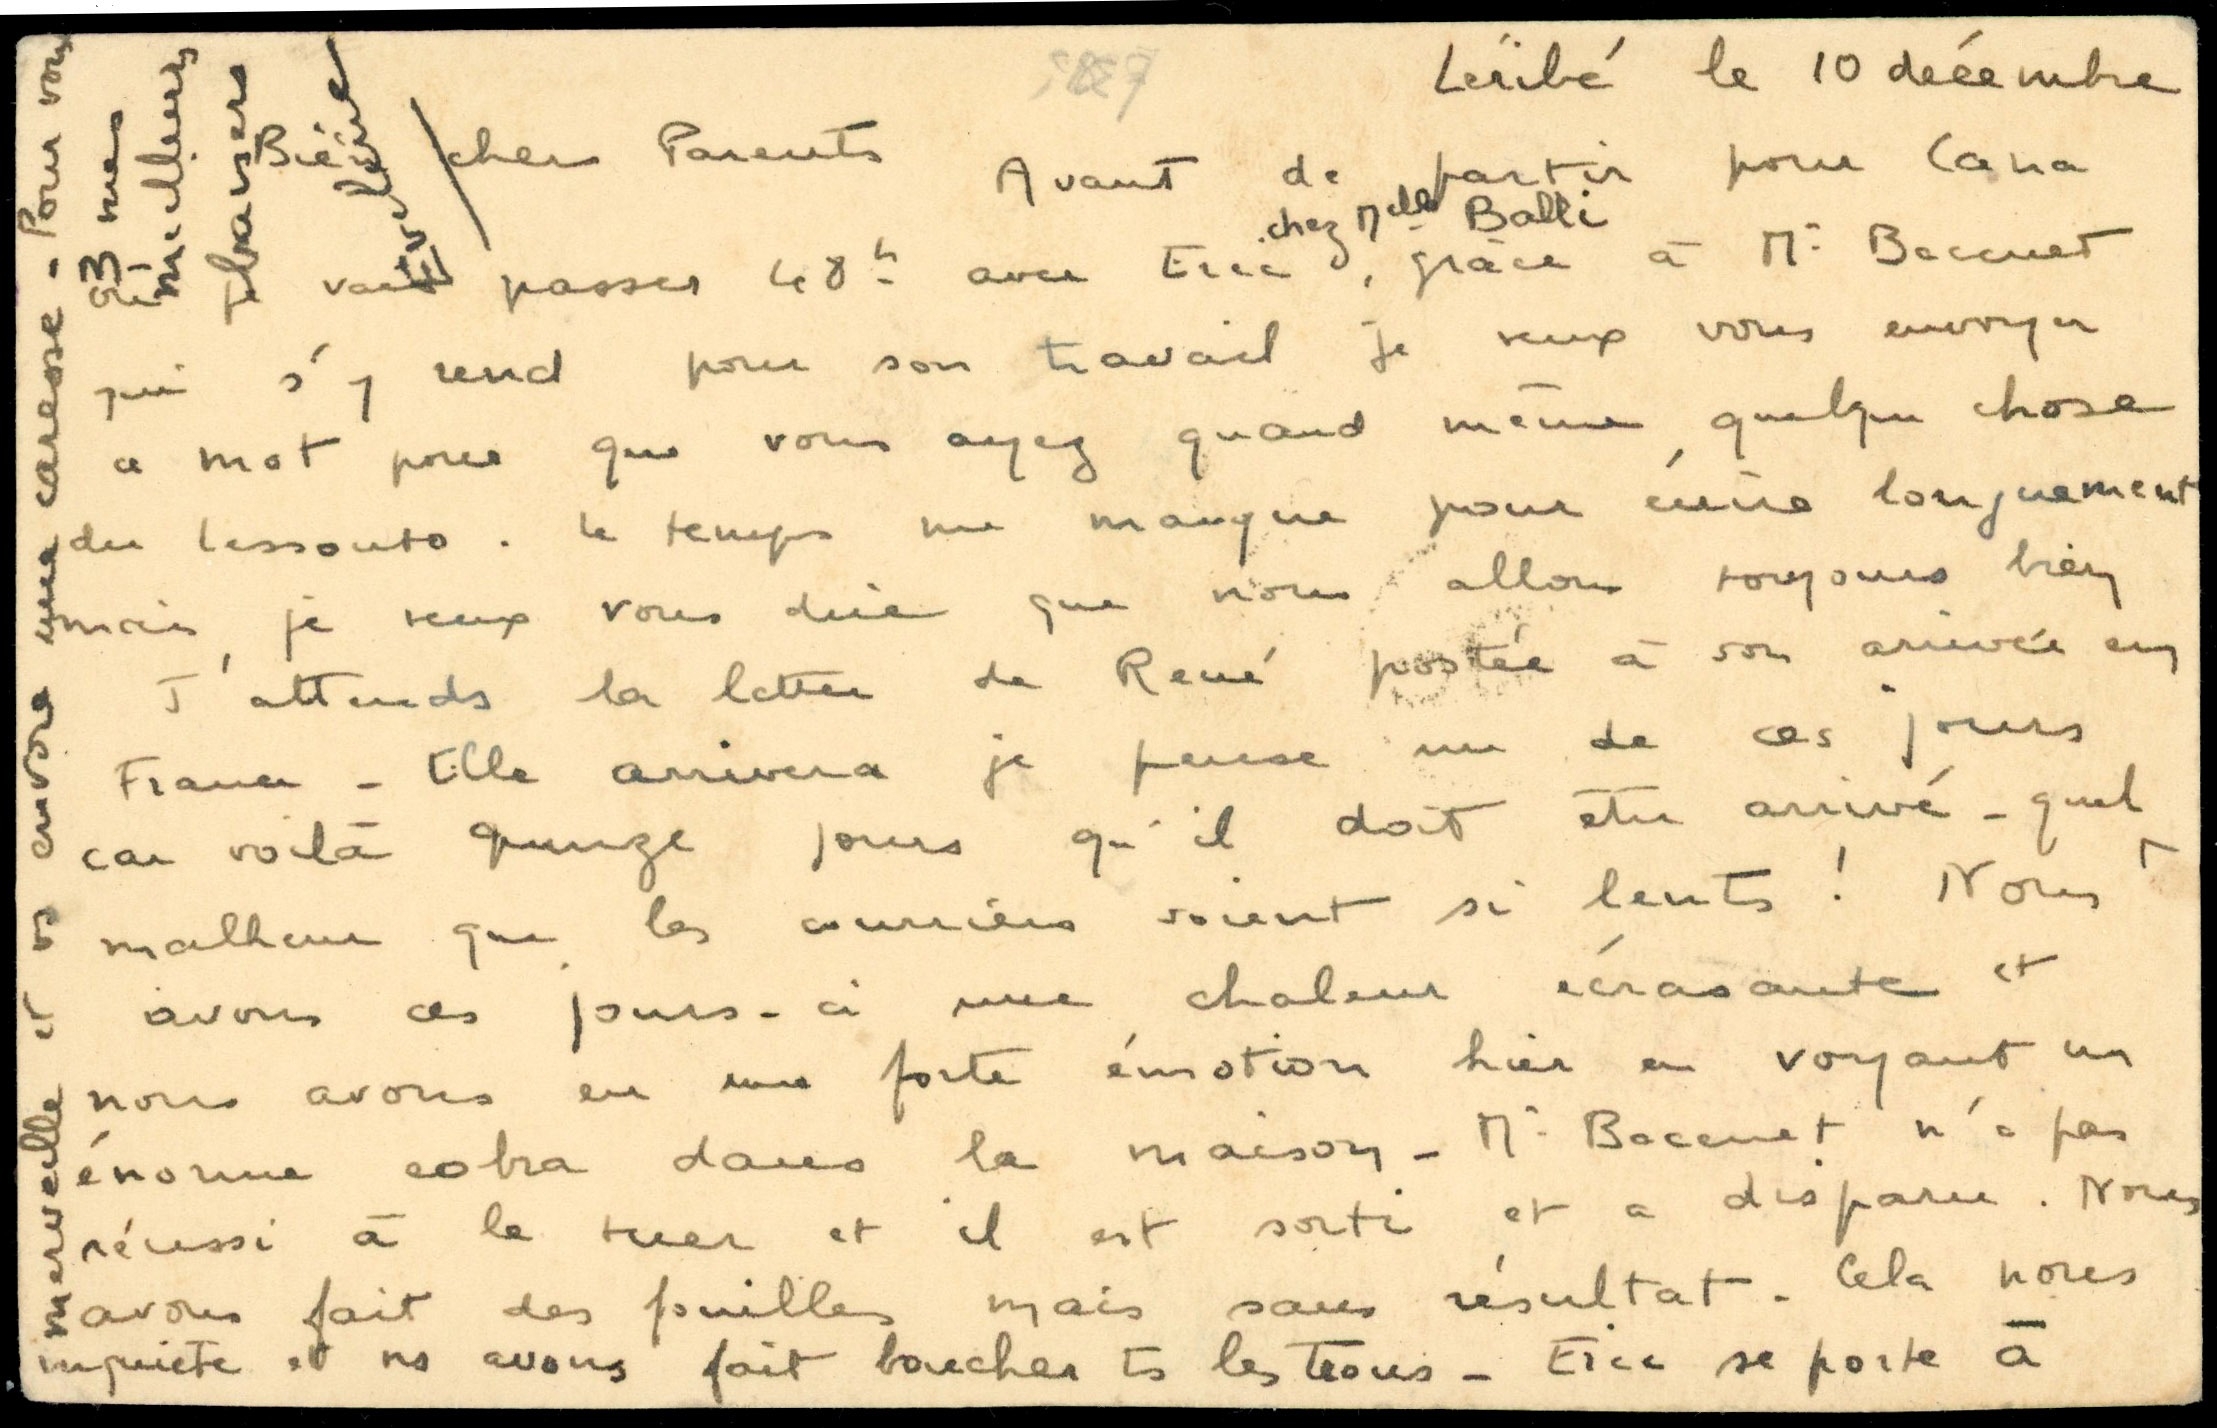 Léribé le 10 décembre
Bien chers Parents
Avant de partir pour Cana
où je vais passer 48h avec Eric chez Melle Balli, grâce à Mr Baccuet
qui s'y rend pour son travail je veux vous envoyer
ce mot pour que vous ayez quand même quelque chose
du Lessouto. Le temps me manque pour écrire longuement
mais je veux vous dire que nous allons toujours bien
J'attends la lettre de René postée à son arrivée en
France - Elle arrivera je pense un de ces jours
car voilà quinze jours qu'il doit être arrivé - quel
malheur que les courriers soient si lents ! Nous
avons ces jours-ci une chaleur écrasante et
nous avons eu une forte émotion hier en voyant un
énorme cobra dans la maison - Mr Baccuet n'a pas
réussi à le tuer et il est sorti et a disparu. Nous
avons fait des fouilles mais sans résultat. Cela nous
inquiète et ns avons fait boucher ts les trous - Eric se porte à
merveille et vs envoie une caresse - Pour vous
3 mes
meilleurs
baisers
Evelyne